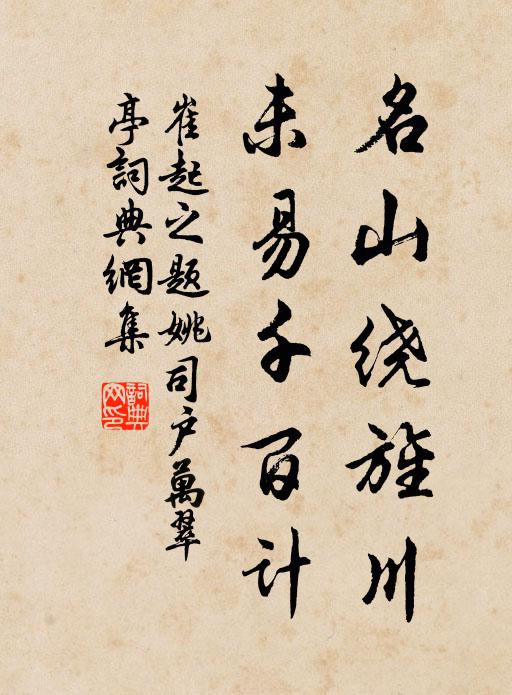 名山绕旌川
未易千百计
崔起之题姚司户萬翠
亭詞典網集
詞典
网印